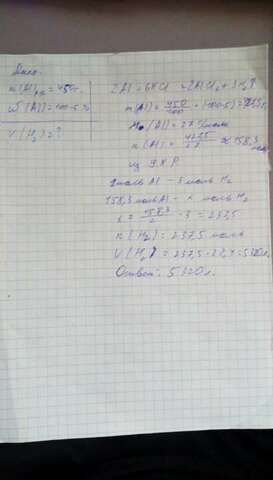 Дано:
m(Al)
ω(Al) = 100-5 %
V(H₂) = ?
2Al + 6HCl = 2AlCl₃ + 3H₂↑
m(Al) = (100-5) =
M(Al) = 27
n(Al) = ≈ 158,3
из УХР
2 моль Al - 3 моль H₂
158,3 моль Al - x моль H₂
x = 158,3/2 · 3 = 237,5
n(H₂) = 237,5 моль
V(H₂) = 237,5 · 22,4 = 5320 л
Ответ: 5320 л.